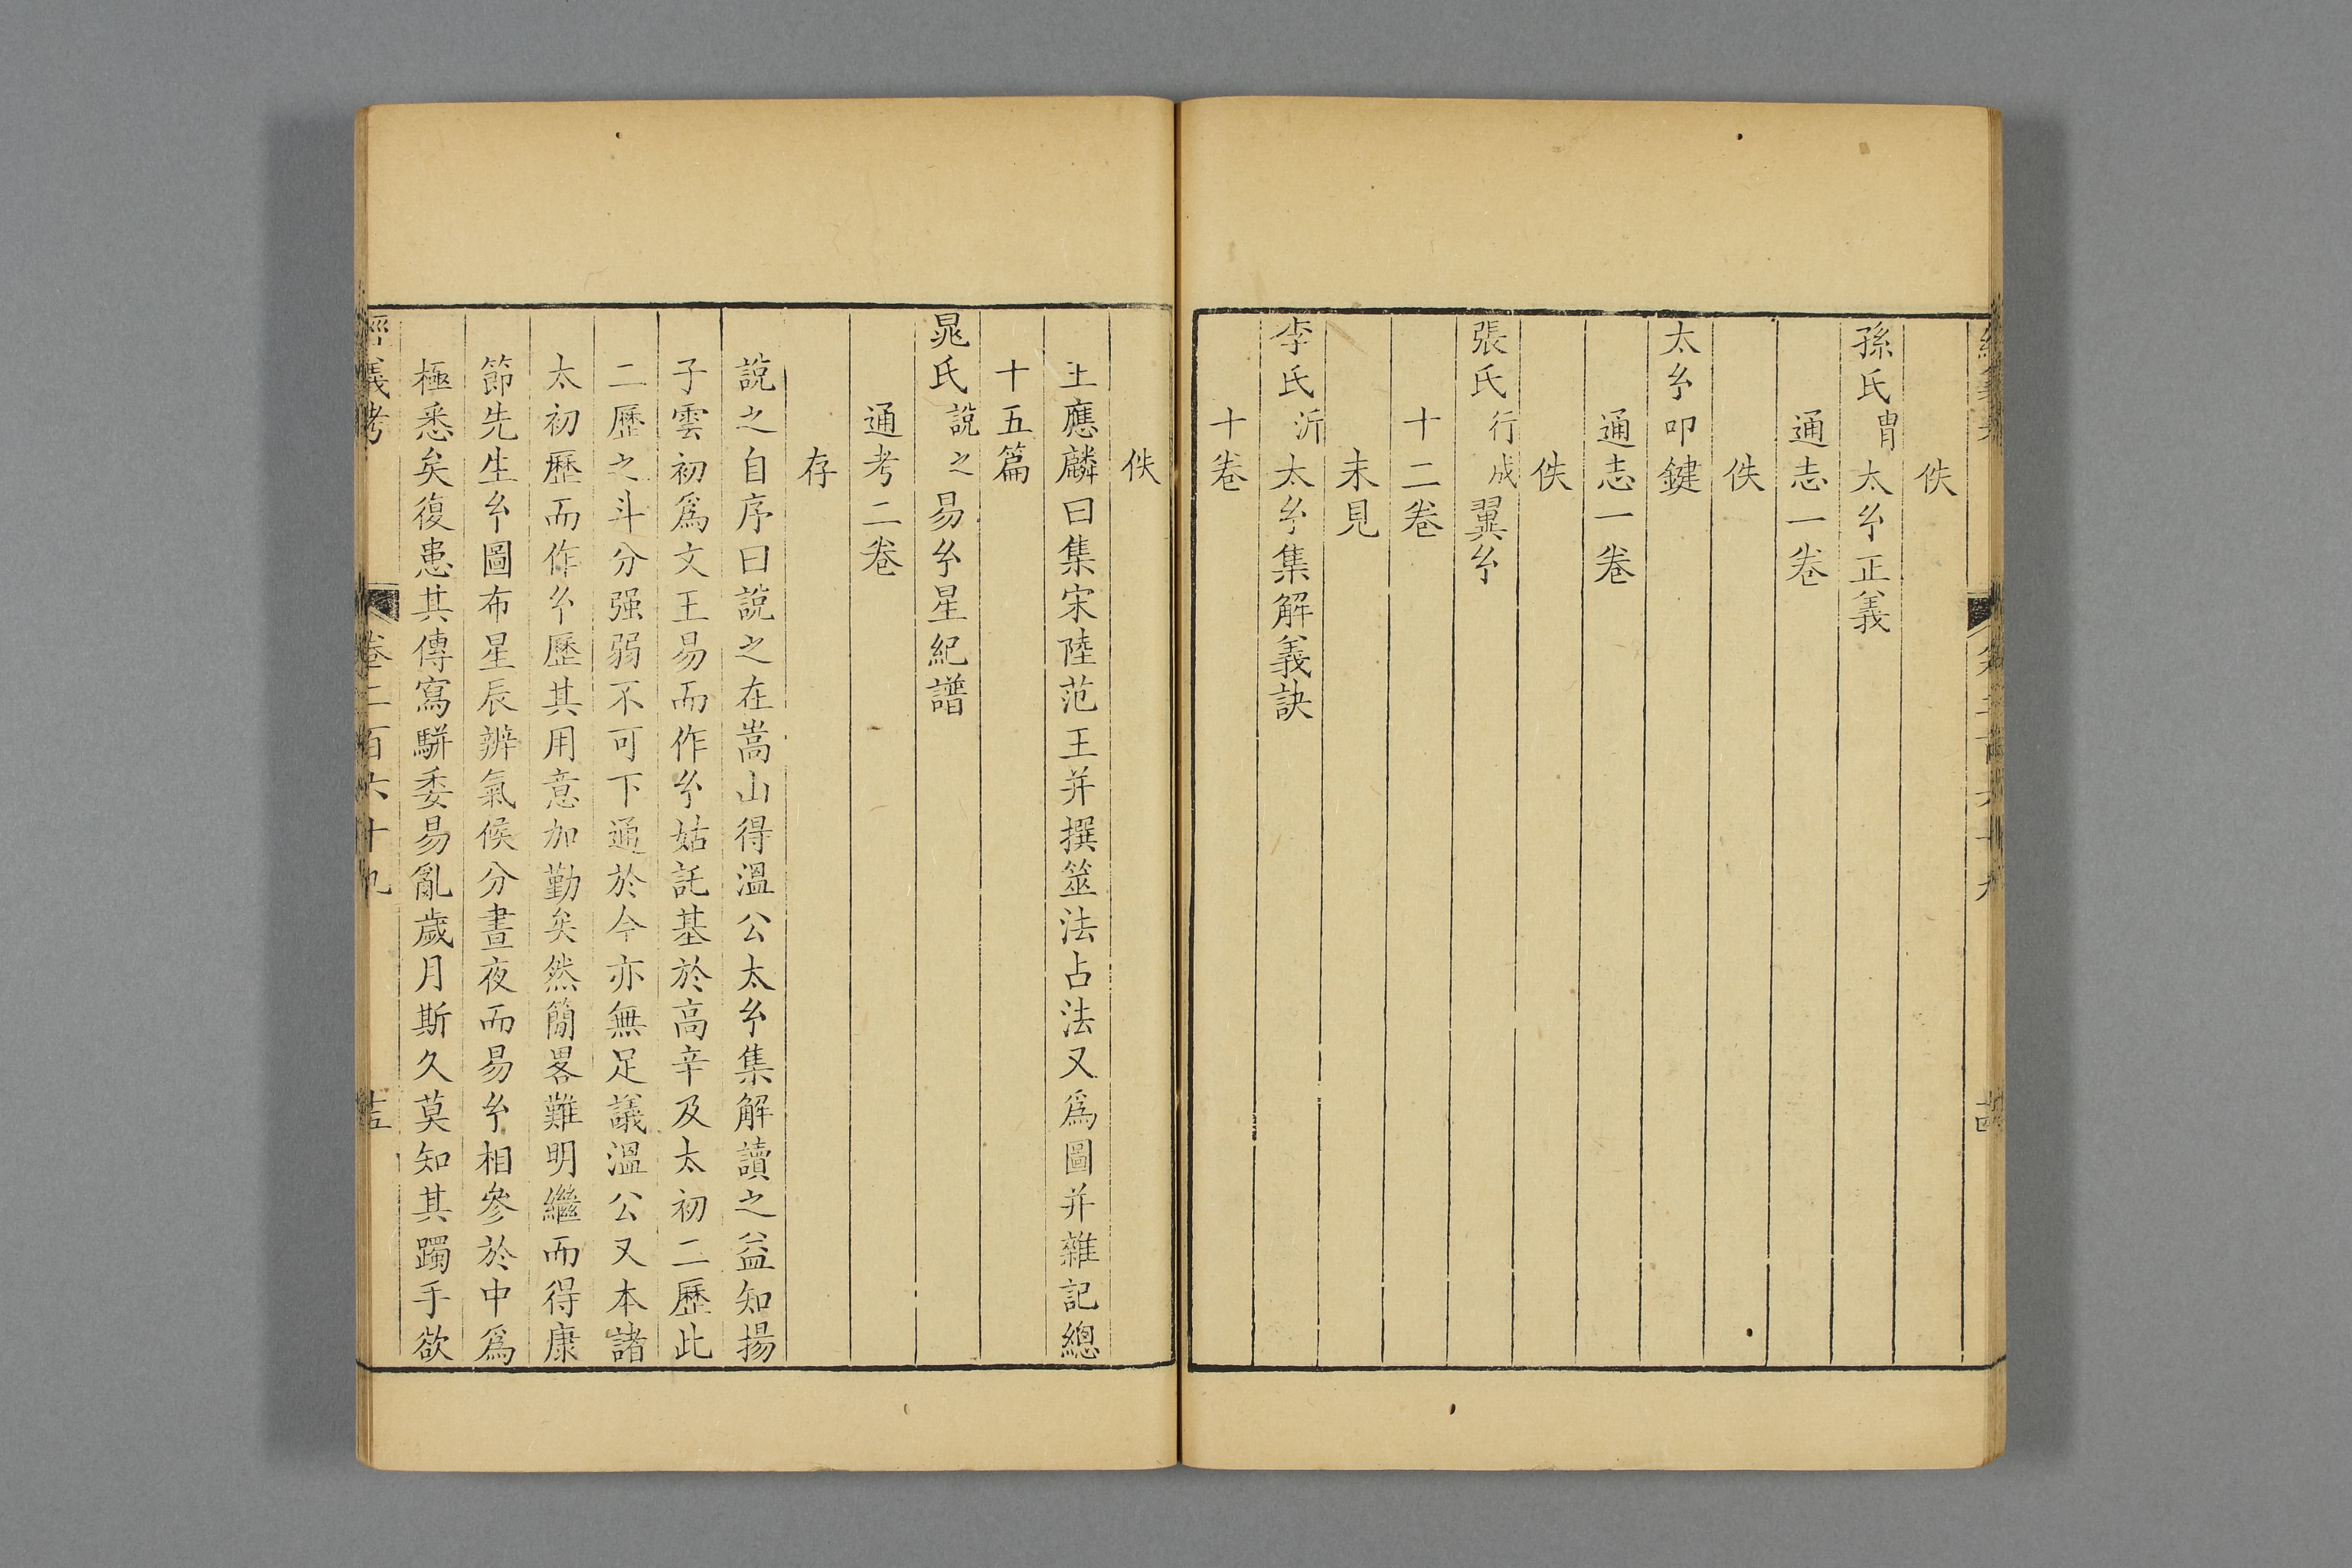 佚
孫氏胄太玄正義
通志一卷
佚
太玄叩鍵
通志一卷
佚
張氏行成翼玄
十二卷
未見
李氏沂太玄集解義訣
十卷
佚
王應麟曰集宋陸范王并撰筮法占法又為圖并雜記總
十五篇
晁氏說之易玄星紀譜
通考二卷
存
說之自序曰說之在嵩山得溫公太玄集解讀之益知揚
子雲初爲文王易而作玄姑託基於高辛及太初二歷此
二歷之斗分强弱不可下通於今亦無足議溫公又本諸
太初歷而作玄歷其用意加勤矣然簡畧難明繼而得康
節先生玄圖布星辰辨氣候分晝夜而易玄相參於中爲
極悉矣復患其傳寫駢委易亂歲月斯久莫知其躅手欲
經義考 卷二百六十九 十五